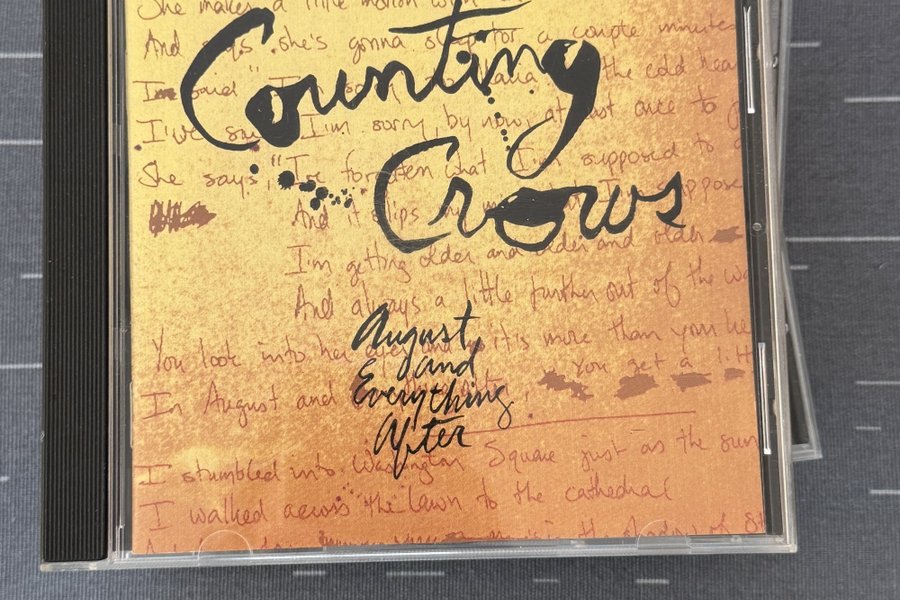 She makes a little motion with
Counting
And says she's gonna stay for a couple minute
I'm said the cold hea
I've I'm sorry, by now, at just once to
She says, "I've forgotten what I'm supposed to
Crows
And it slips my suppose
I'm getting older and older and older
And always a little further out of the wa
August,
and
Everything
After
You look into her eyes and it's more than your he
In August and You get a litt
I stumbled into Washington Square just as the sun
I walked across the lawn to the cathedral
in the shadow of St